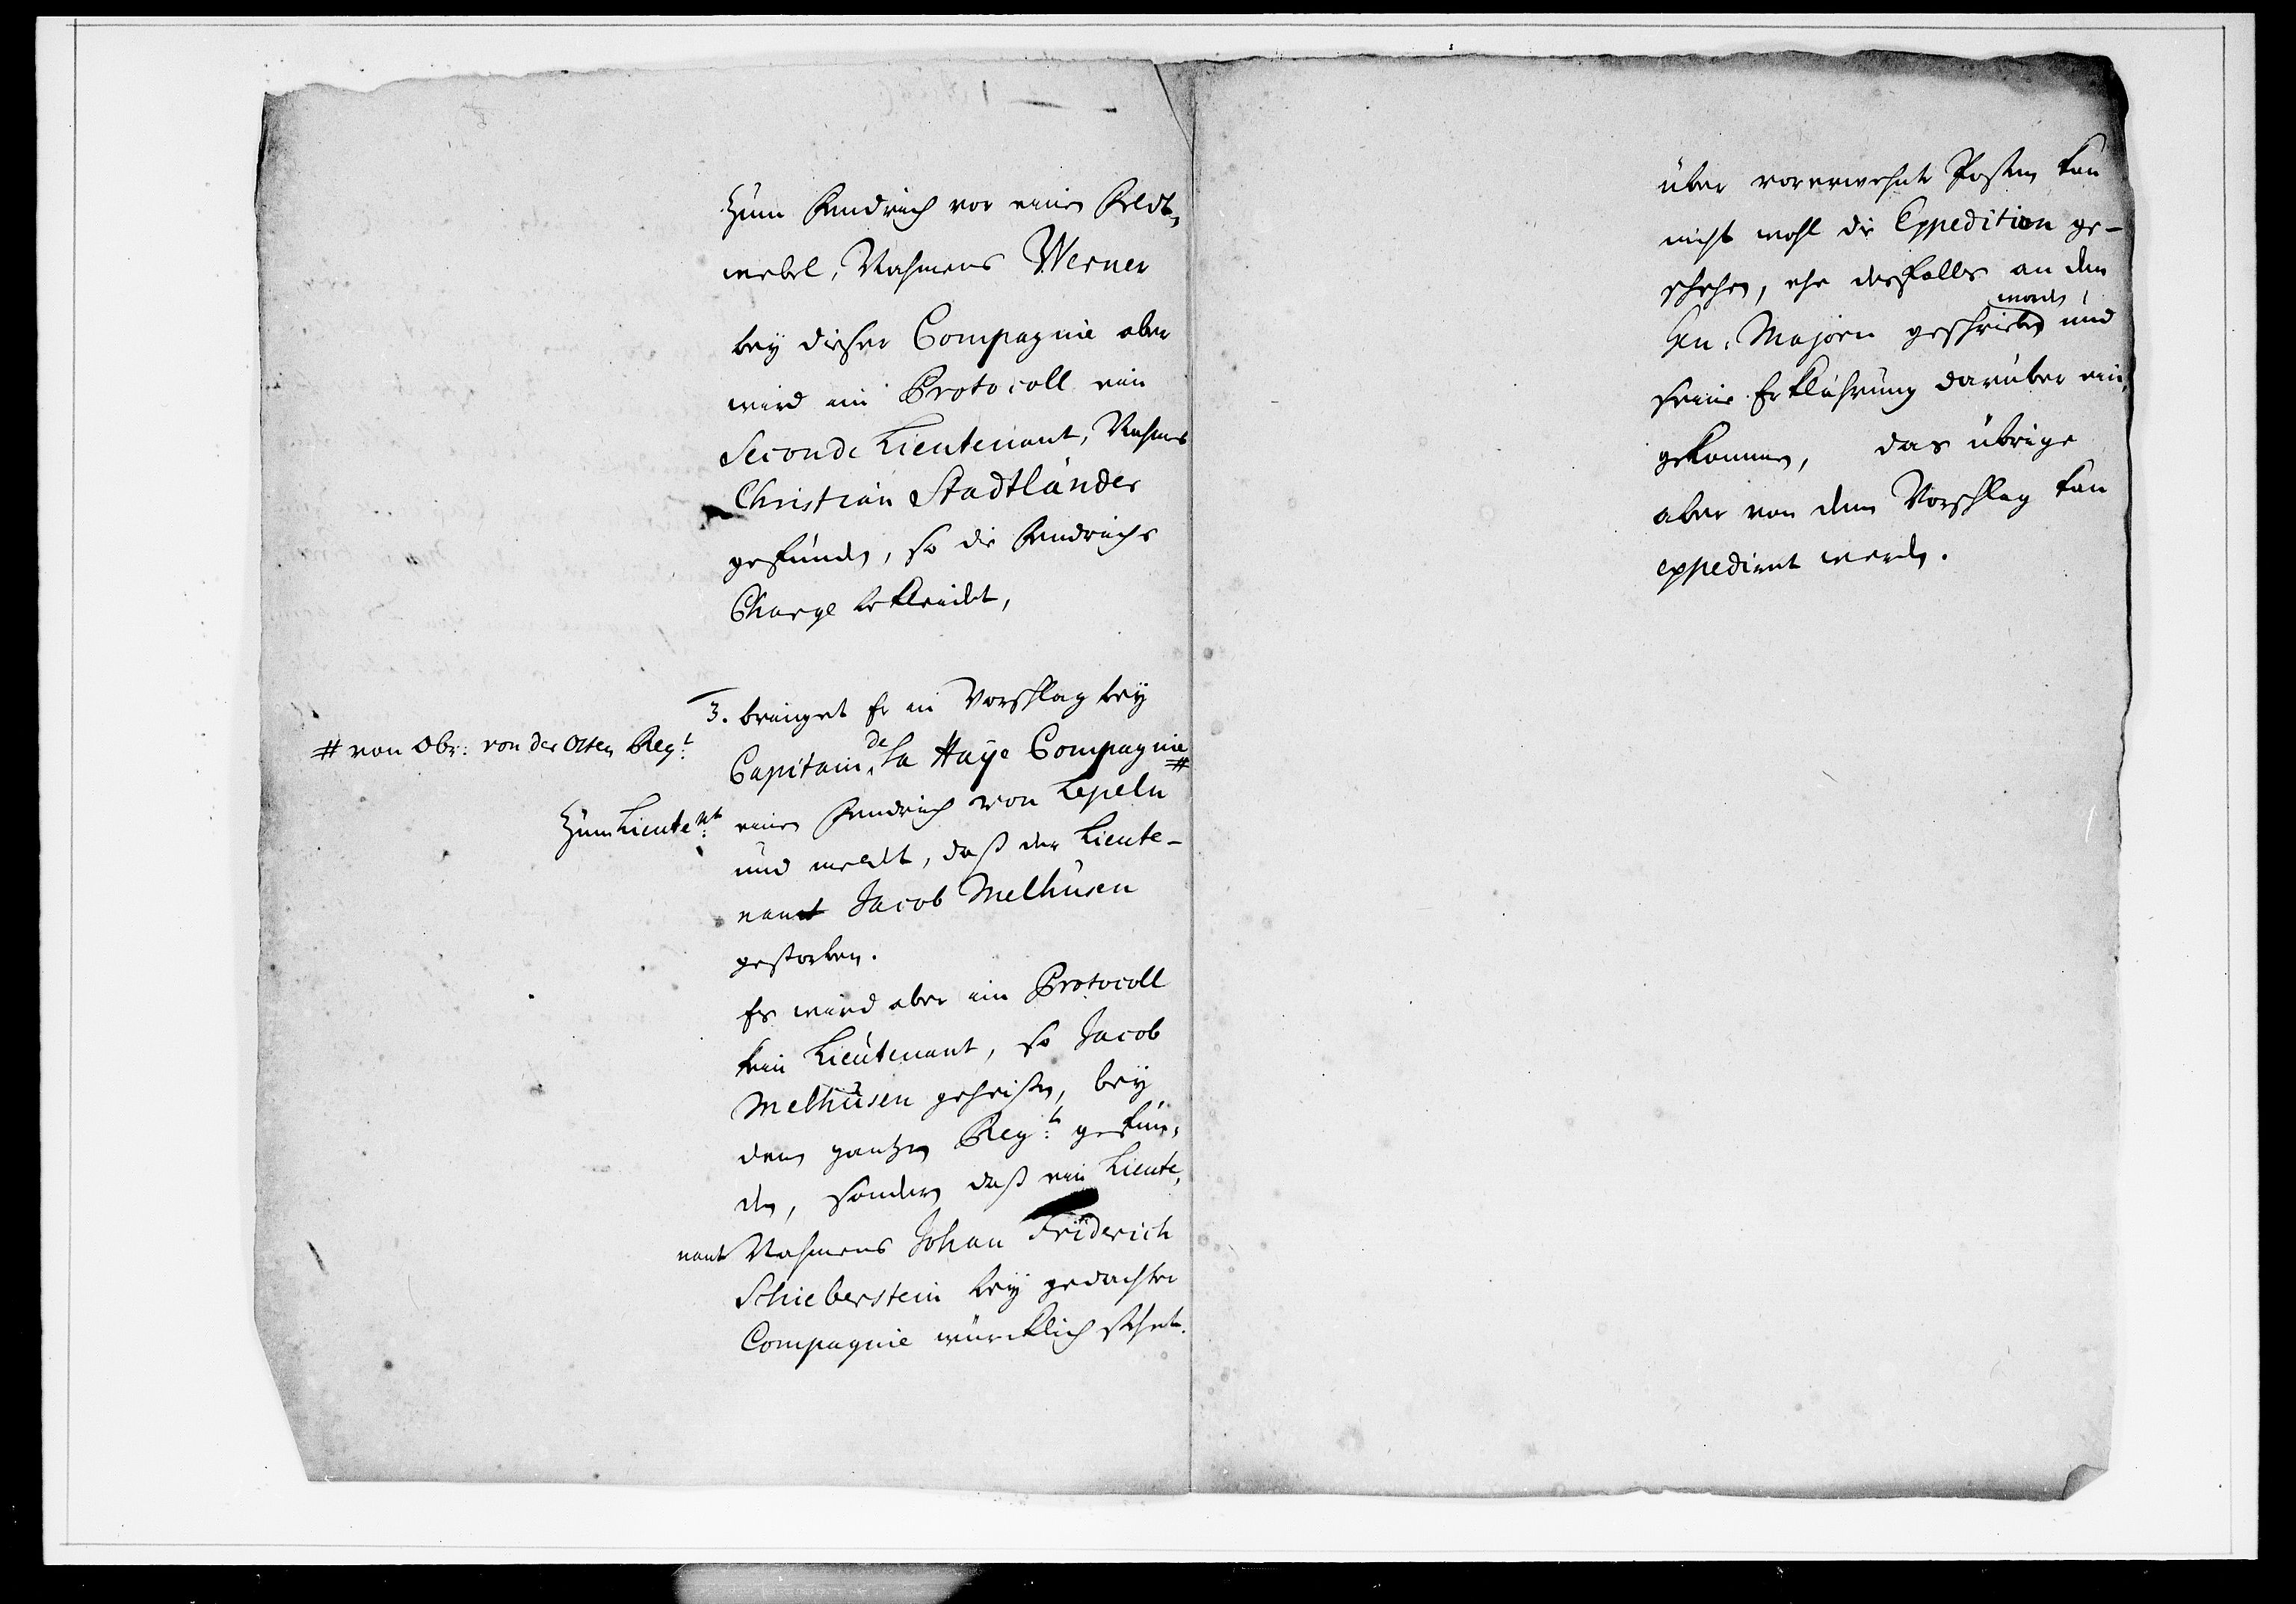 zum Fendrich vor einen Feldt-
webel, Nahmens Werner
bey dieser Compagnie aber
wird im Protocoll ein
Seconde Lieutenant, Nahmens
Christian Stadtländer
gefunden, so die Fendrichs
Charge bekleidet,
3. bringet Er in Vorschlag bey
Capitain de la Haye Compagnie
# von Obr: von der Osten Regt:
#
einen Fendrich von Lepeln
zum Lieutent:
und meldet, daß der Lieute-
nant Jacob Melhusen
gestorben.
Es wird aber im Protocoll
kein Lieutenant, so Jacob
Melhusen geheißen, bey
dem gantzen Regt: gefun-
den, sondern daß ein Lieute-
nant Nahmens Johan Friderich
Schieberstein bey gedachter
Compagnie würcklich stehet.
über vorerwehnte Posten kan
nicht wohl die Expedition ge-
schehen, ehe desfalls an den
Gen: Majorn geschrieben worden, und
seine Erklährung darüber ein-
gekommen, das übrige
aber von dem Vorschlag kan
expediret werden.